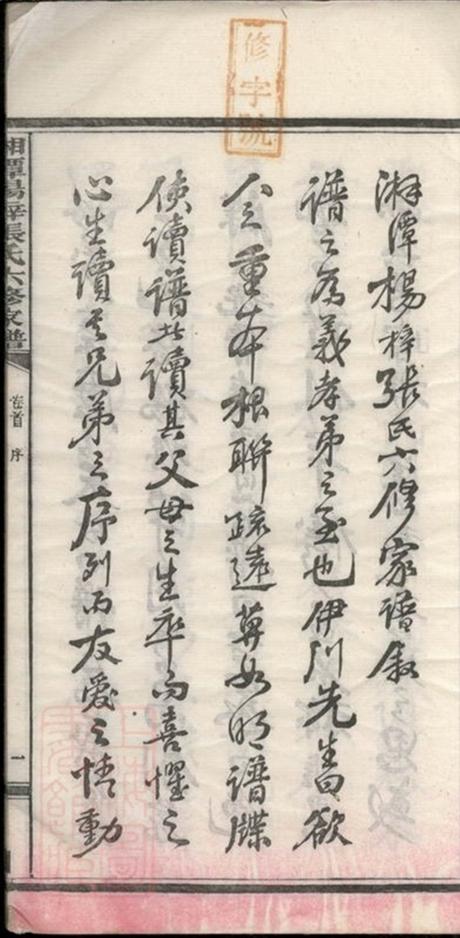 修字號
湘潭楊梓張氏六修家譜敘
譜之為義孝弟之至也伊川先生曰欲
人之重本根聯疏遠莫如明譜牒
使讀譜者讀其父母之生卒而喜懼之
心生讀其兄弟之序列而友愛之情動
湘潭楊梓張氏六修家譜
卷首 序
一